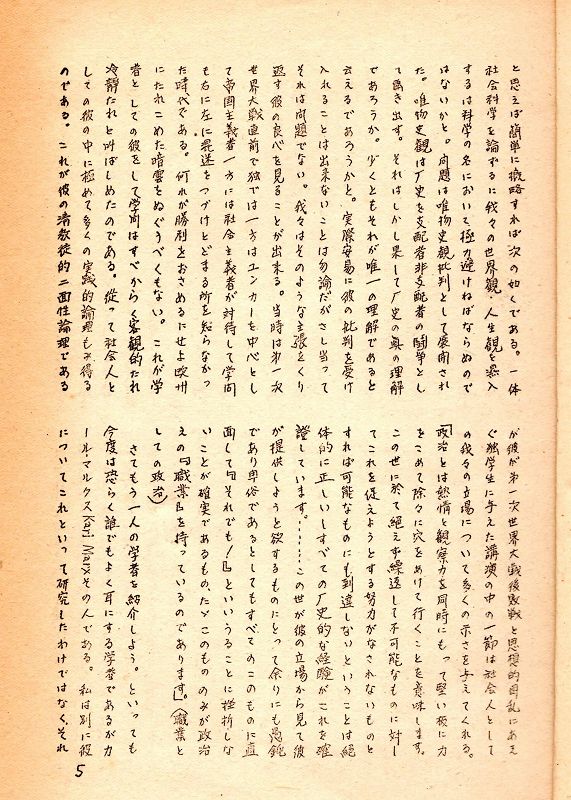 と思えば簡単に概略すれば次の如くである。一体
社会科学を論ずるに我々の世界観、人生観を混入
するは科学の名において極力避けねばならぬので
はないかと。問題は唯物史観批判として展開され
た。唯物史観は厂史を支配者非支配者の闘争とし
て画き出す。それはしかし果して厂史の真の理解
であろうか。少くともそれが唯一の理解であると
云えるであろうかと。実際安易に彼の批判を受け
入れることは出来ないことは勿論だがさし当って
それは問題でない。我々はそのような主張をくり
返す彼の良心を見ることが出来る。当時は第一次
世界大戦直前で独では一方はユンカーを中心とし
て帝国主義者一方には社会主義者が対待して学問
も右に左に混迷をつづけとどまる所を知らなかっ
た時代である。何れが勝利をおさめるにせよ欧州
にたれこめた暗雲をぬぐうべくもない。これが学
者としての彼をして学問はすべからく客観的たれ
冷静たれと叫ばしめたのである。従って社会人と
しての彼の中に極めて多くの実践的論理もみ得る
のである。これが彼の清教徒的二面性論理である
が彼が第一次世界大戦後敗戦と思想的困乱にあえ
ぐ独学生に与えた講演の中の一節は社会人として
の我々の立場について多くの示さを与えてくれる。
「政治とは熱情と観察力を同時にもって堅い板に力
をこめて除々に穴をあけて行くことを意味します。
この世に於て絶えず繰返して不可能なものに対し
てこれを促えようとする努力がなされないものと
すれば可能なものにも到達しないということは絶
体的に正しいしすべての厂史的な経験がこれを確
證しています。……この世が彼の立場から見て彼
が提供しようと欲するものにとって余りにも愚鈍
であり卑俗であるとしてもすべてのこのものに直
面して『それでも!』といいうることに挫折しな
いことが確実であるものたゞこのもののみが政治
えの『職業』を持っているのであります」。(職業と
しての政治)
さてもう一人の学者を紹介しよう。といっても
今度は恐らく誰でもよく耳にする学者であるがカ
ールマルクスKarl Marxその人である。私は別に彼
についてこれといって研究したわけではなく、それ
5